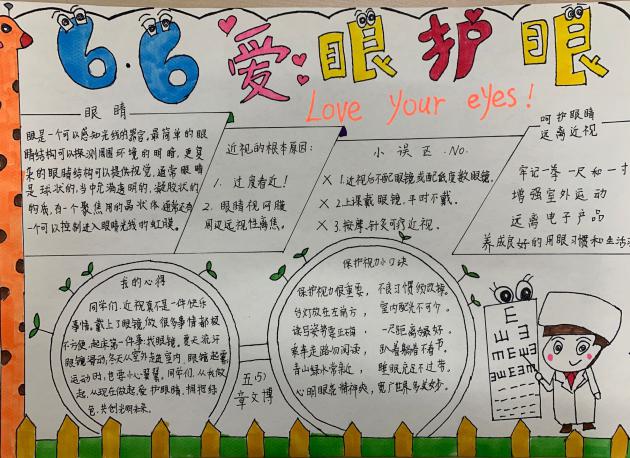 6.6爱眼护眼
Love your eyes!
眼睛
眼是一个可以感知光线的器官。最简单的眼
睛结构可以探测周围环境的明暗，更复
杂的眼睛结构可以提供视觉，通常眼睛
是球状的，当中充满透明的，凝胶状的
物质，有一个聚焦用的晶状体，通常还有
一个可以控制进入眼睛光线的虹膜。
近视的根本原因：
1. 过度看近！
2. 眼睛视网膜
周边远视性离焦。
小误区.No.
X 1.近视分不配眼镜或配低度数眼镜.
X 2.上课戴眼镜，平时不戴.
X 3.按摩、针灸可疗近视.
呵护眼睛
远离近视
牢记一拳一尺和一寸
增强室外运动
远离电子产品
养成良好的用眼习惯和生活
我的心得
同学们，近视真不是一件快乐
事情，戴上了眼镜，做很多事情都极
不方便，起床第一件事，找眼镜，夏天流汗
眼镜滑动，冬天从室外走进室内，眼镜起雾，
运动时，也要小心翼翼。同学们，从我做
起，从现在做起，爱护眼睛，拥抱绿
色，共创光明未来。
五(5)
章文博
保护视力小口诀
保护视力很重要，不良习惯须改掉。
台灯放在左前方，室内配光不可少。
读写姿势要正确，一尺距离要保好。
乘车走路勿阅读，趴着躺着不看书。
青山绿水常亲近，睡眠充足不过劳。
心明眼亮精神爽，览了世界多美妙。